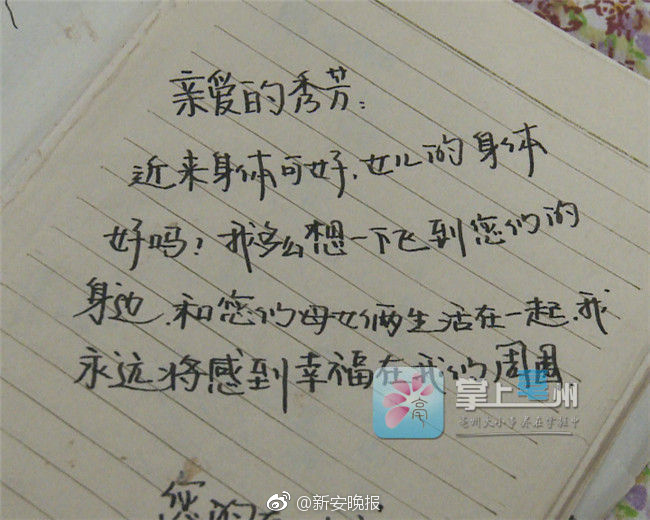 亲爱的秀芳：
近来身体可好，女儿的身体
好吗？我多么想一下飞到您们的
身边，和您们母女俩生活在一起，我
永远将感到幸福在我们周围
掌上亳州
亳州大小事 尽在掌握中
您的
@新安晚报